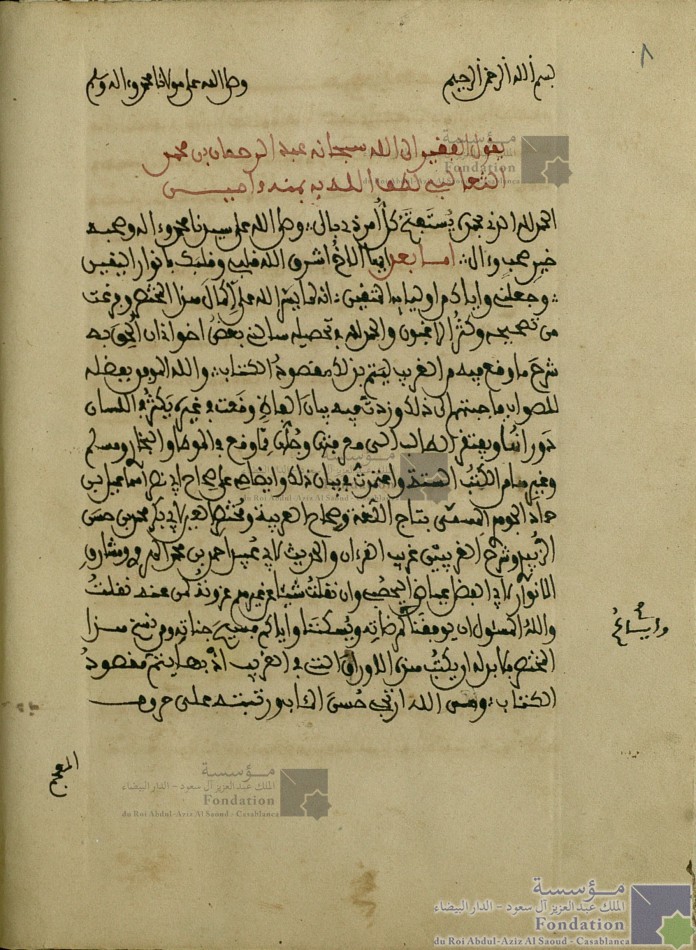 ٨
بسم الله الرحمن الرحيم وصلى الله على مولانا محمد وءاله وسلم
يقول الفقير الى الله سبحانه عبد الرحمان بن محمد
الثعالبي لطف الله به بمنه وامين
الحمد لله الذي بحمده يستفتح كل أمر ذي بال وصلى الله على سيدنا محمد وءاله وصحبه
خير صحب وءال اما بعد ايها الاخ اشرق الله قلبي وقلبك بانوار اليقين
وجعلني واياكم من اوليائه المتقين انه لما يسر الله على إكمال هذا المختصر وفرغت
من تصحيحه وكثر الراغبون والحمد لله في تحصيله سالني بعض اخواني ان ألحق به
شرح ما وقع فيه من الغريب ليتم بذلك مقصود الكتاب والله الموفق بفضله
للصواب فاجبتهم الى ذلك وزدت فيه بيان الفاظ وقعت في غيره يكثر في اللسان
دورانها ويفتقر الطالب الى معرفتها وجلها مما وقع في الموطا والبخاري ومسلم
وغيرهما من الكتب الستة واعتمدت في بيان ذلك وايضاحه على صحاح ابي نصر اسماعيل بن
حماد الجوهري المسمى بتاج اللغة وصحاح العربية ومختصر العين لابي بكر محمد بن حسن
الزبيدي وشرح الغريبين غريب القرءان والحديث لابي عبيد احمد بن محمد الهروي ومشارق
الانوار لابي الفضل عياض اليحصبي وان نقلت شيئا عن غيرهم عزوته لمن عنه نقلت
والله المسئول ان يوفقنا لمرضاته ويسكننا واياكم فسيح جناته ومن نسخ هذا
المختصر فلا بد له ان يكتب هذه الاوراق التي في الغريب اذ بها يتم مقصود
الكتاب ومن الله ارتجي حسن المئاب ورتبته على حروف
المعجم
مؤسسة
الملك عبد العزيز آل سعود - الدار البيضاء
Fondation
du Roi Abdul-Aziz Al Saoud - Casablanca